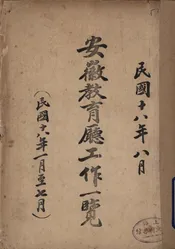 民國十八年八月
安徽教育廳工作一覽
(民國十八年一月至七月)